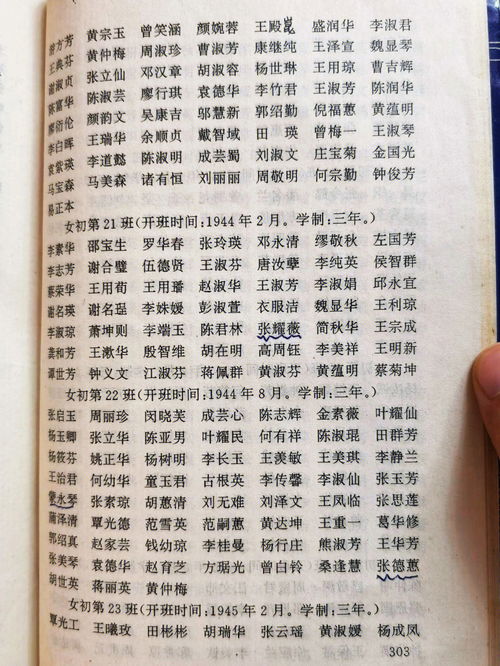 曾方芳 黄宗玉 曾笑涵 颜婉蓉 王殿崑 盛润华 李淑君
王典芬 黄仲梅 周淑珍 曹淑芳 康继纯 王泽宣 魏显琴
谢淑贞 张立仙 邓汉章 胡淑容 杨世琳 王用琼 曹吉辉
陈富华 陈淑芸 廖行琪 袁德华 李竹君 王淑芳 陈润华
廖衍伦 颜韵文 吴康吉 邬慧新 郭绍勤 倪福蕙 黄蕴明
李白晖 王瑞华 余顺贞 戴智域 田瑛 曾梅一 王淑琴
袁棠瑛 李道懿 陈淑明 成芸蜀 刘淑文 庄宝菊 金国光
马宝森 马美森 诸有恒 刘丽丽 周敬明 何宗勤 钟俊芳
杨正本
女初第21班(开班时间:1944年2月。学制:三年。)
李素华 邵宝生 罗华春 张玲瑛 邓永清 缪敬秋 左国芳
李志芳 谢合璧 伍德贤 王淑芬 唐汝孽 李纯英 侯智群
蔡荣华 王用荀 王用璠 赵淑华 王淑芳 李淑娟 邱永宜
谢名瑛 谢名琚 李姝媛 彭淑萱 衣服洁 魏显华 王利琼
李淑琼 萧坤则 李端玉 陈君林 张耀薇 简秋华 王宗成
龚和芳 王漱华 殷智维 胡在明 高周钰 李美祥 王明新
谭世芳 钟义文 江淑芬 蒋佩群 黄淑芬 黄蕴明 蔡菊坤
女初第22班(开班时间:1944年8月。学制:三年。)
张启玉 周丽珍 闵晓芙 成芸心 陈志辉 金素薇 叶耀仙
杨玉卿 张立华 陈亚男 叶耀民 何有祥 陈淑琨 田群芳
杨筱芬 姚正华 杨树明 李长玉 王羡敏 王美琪 李静兰
王治君 何幼华 童玉君 古根英 李传馨 李淑仙 张玉芳
永琴 张素琼 胡蕙清 刘无难 刘泽文 王凤临 张思莲
蒲泽清 覃光德 范雪英 范嗣蕙 黄达坤 王重一 葛华修
郭绍真 赵家芸 钱幼琼 李桂曼 杨行庄 熊淑芳 王华芳
张美琴 袁德华 赵育芝 方琚光 曾白铃 桑逢慧 张德蕙
胡世英 蒋丽英 黄仲梅
女初第23班(开班时间:1945年2月。学制:三年。)
覃光工 王曦玫 田彬彬 胡瑞华 张云瑶 黄淑媛 杨成凤
303